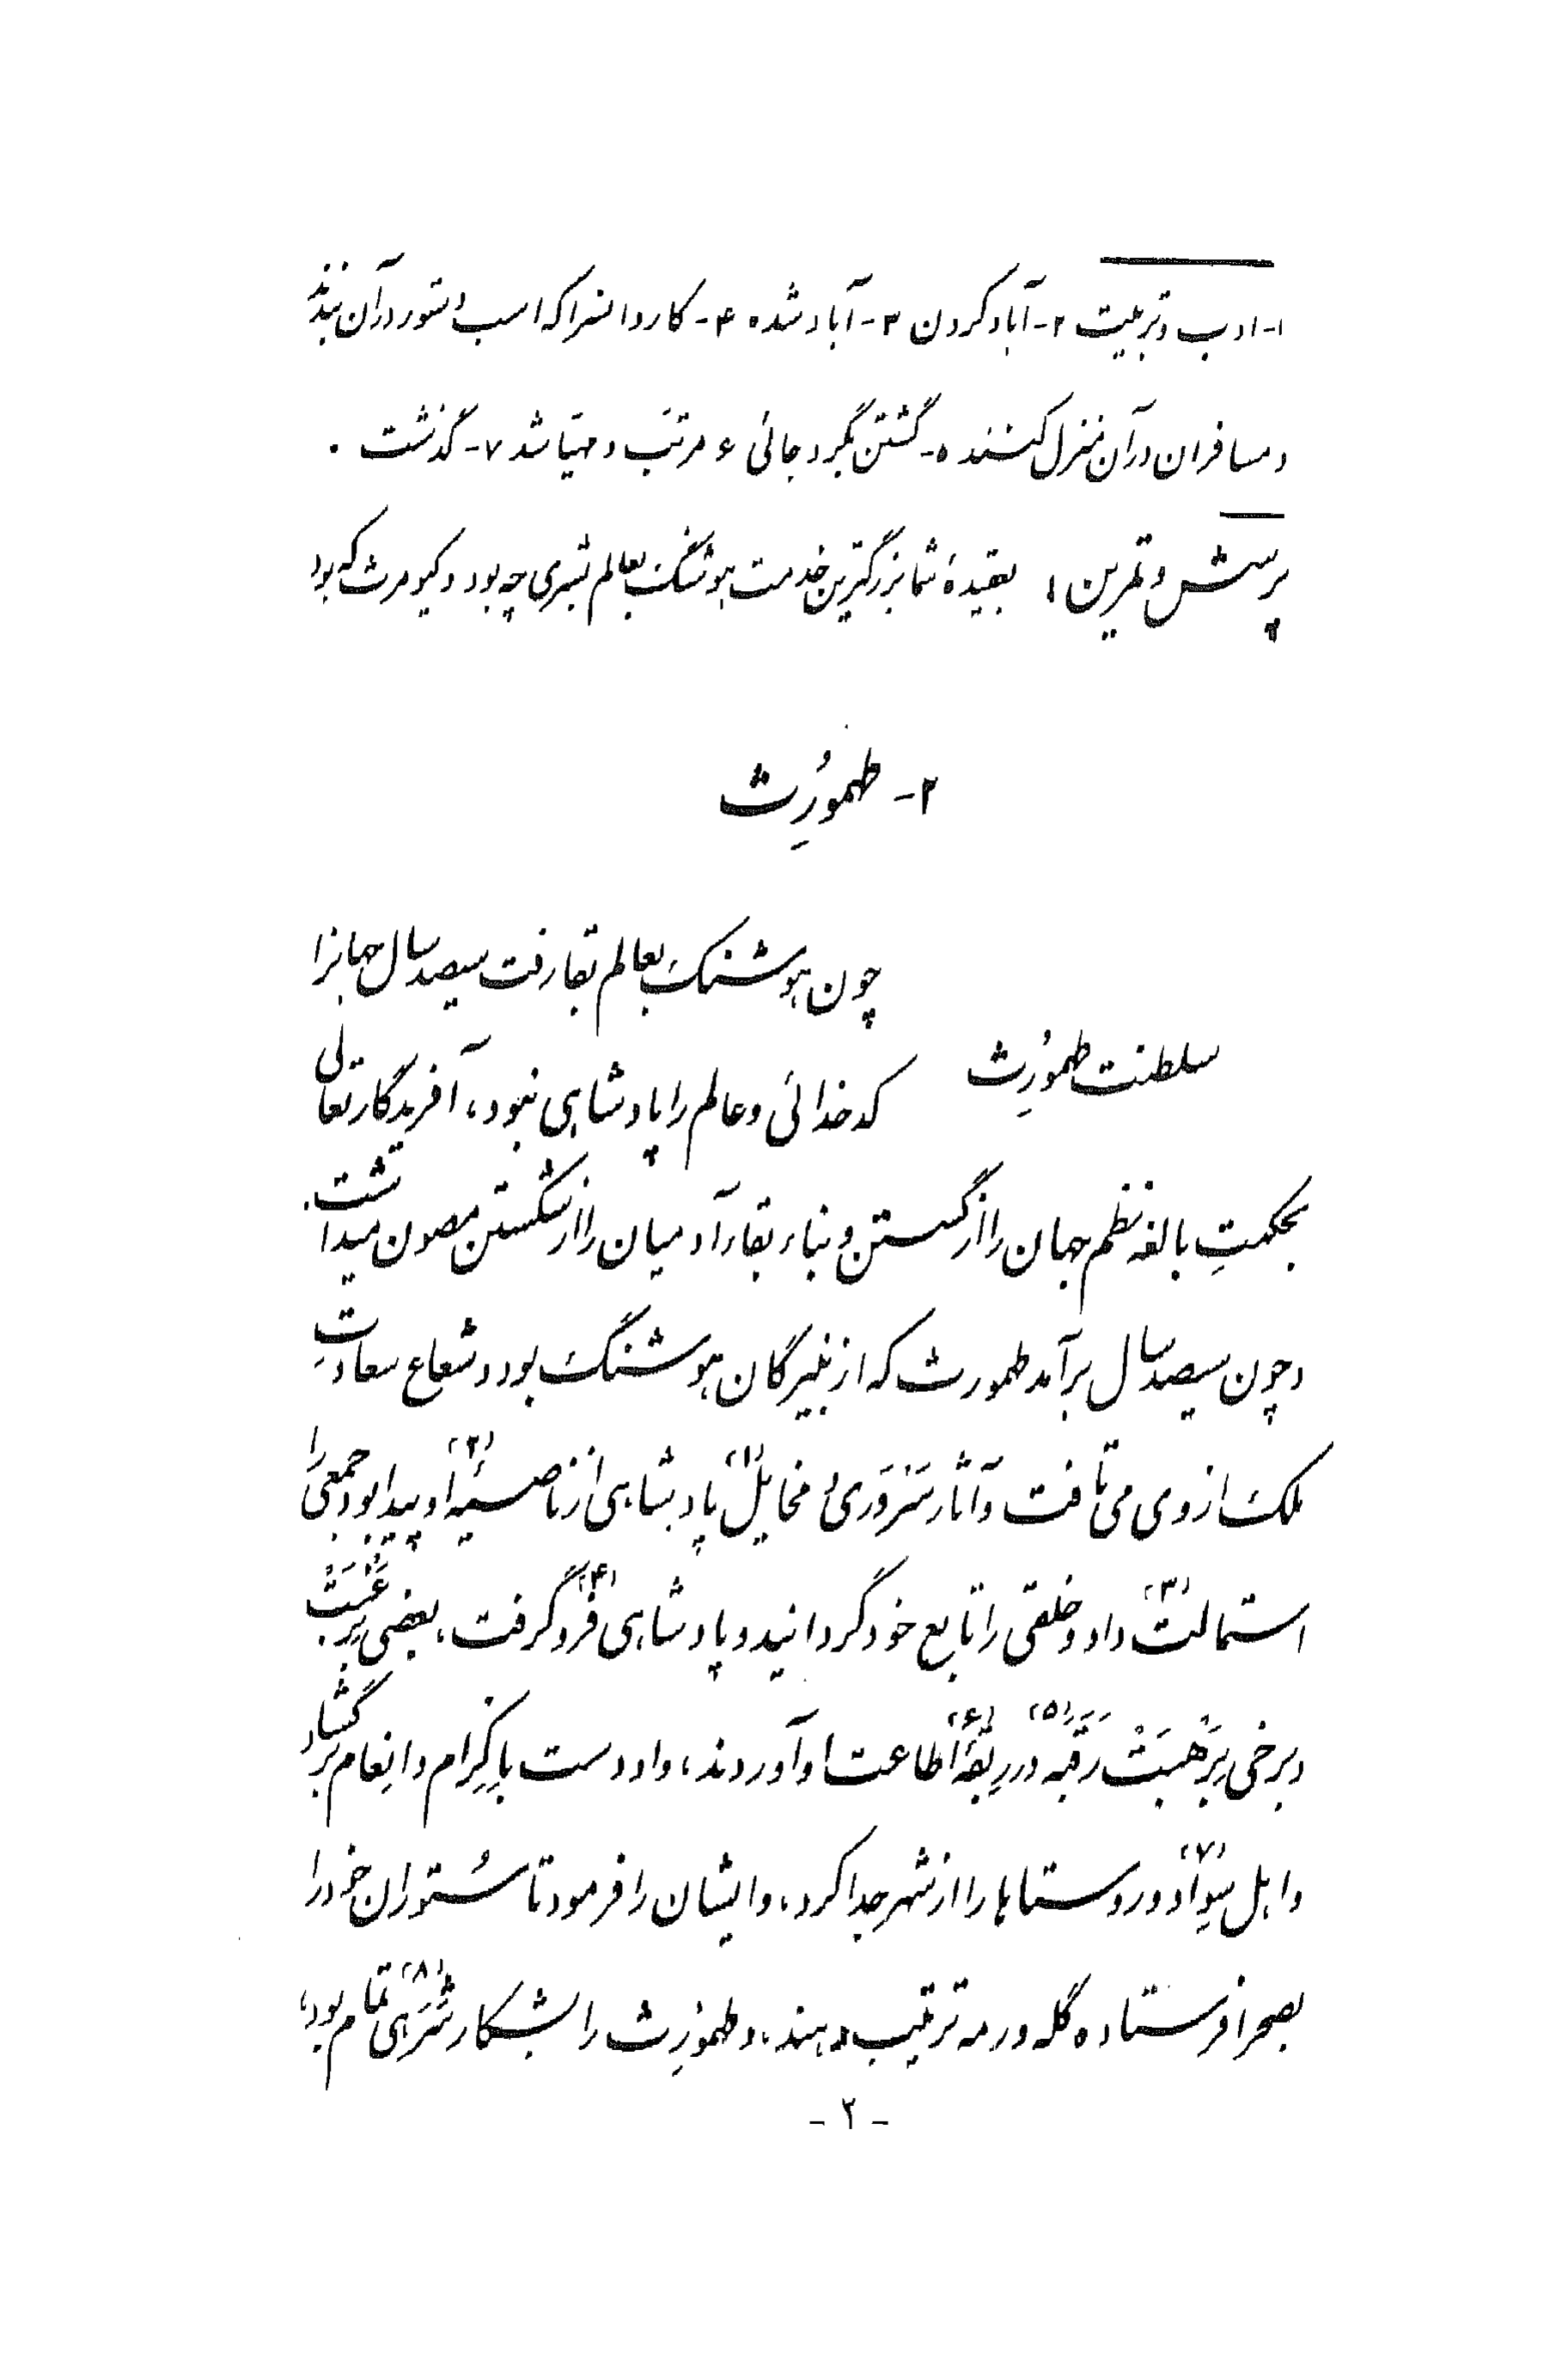 ۱- ادب و تربیت ۲- آباد کردن ۳- آباد شده ۴- کاروانسرا که اسب و ستور در آن بندند
و مسافران در آن منزل کنند ۵- گشتن بگرد جائی ۶ مرتب و مهیا شد ۷- گذشت .
پرسش و تمرین ، بعقیدهٔ شما بزرگترین خدمت هوشنگ بعالم بشری چه بود و کیومرث که بود
۲- طهمورُرِث
چون هوشنگ بعالم بقا رفت سیصد سال جهانرا
سلطنت طهمورُرِث
کدخدائی و عالم را پادشاهی نبود، آفریدگار تعالی
بحکمتِ بالغه نظم جهان را از گسستن و بناء بقاء آدمیان را از شکستن مصون میداشت.
و چون سیصد سال برآمد طهمورث که از نبیرگان هوشنگ بود و شعاع سعادتِ
ملک از وی می تافت و آثار سَرْوَری و مخایل(۱) پادشاهی از ناصیهٔ(۲) او پیدا بود جمعی را
استمالت(۳) داد و خلقی را تابع خود گردانید و پادشاهی فرو(۴) گرفت، بعضی بِرَغْبَتْ
و برخی بِرَهْبَتْ رَقَبَه(۵) در رِبقهٔ(۶) اطاعت او آوردند، و او دست بِاِکرام و اِنعام برگشاد
و اهل سِواد(۷) و روستاها را از شهر جدا کرد، و ایشان را فرمود تا سُتوران خود را
بصحرا فرستاده گله و رمه ترتیب دهند، و طهمورِث را بشکار شَرَهی(۸) تمام بود،
- ۲ -